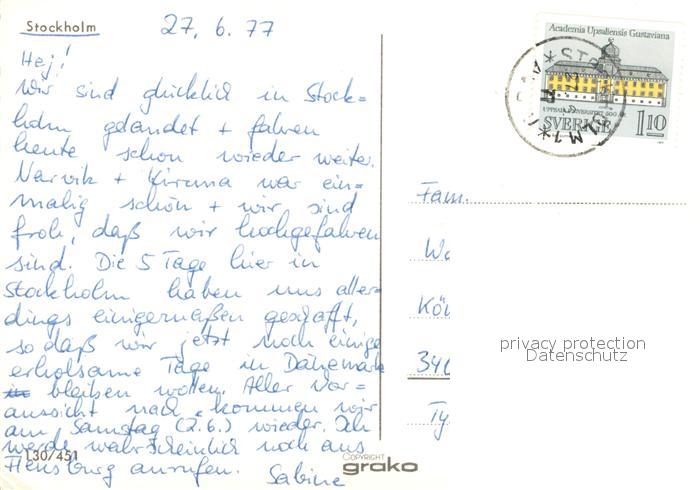 Stockholm 27.6.77
Hej!
Wir sind glücklich in Stock=
holm gelandet + fahren
heute schon wieder weiter.
Narvik + Kiruna war ein=
malig schön + wir sind
froh, daß wir hochgefahren
sind. Die 5 Tage hier in
Stockholm haben uns aller=
dings einigermaßen geschafft,
so daß wir jetzt noch einige
erholsame Tage in Dänemark
bleiben wollen. Aller Vor=
aussicht nach kommen wir
am Samstag (2.6.) wieder. Ich
werde wahrscheinlich noch aus
Flensburg anrufen. Sabine
L30/451
COPYRIGHT
grako
Academia Upsaliensis Gustaviana
UPPSALA UNIVERSITET 500 ÅR
SVERIGE 1 10
Fam.
Kö
340
Ty
privacy protection
Datenschutz